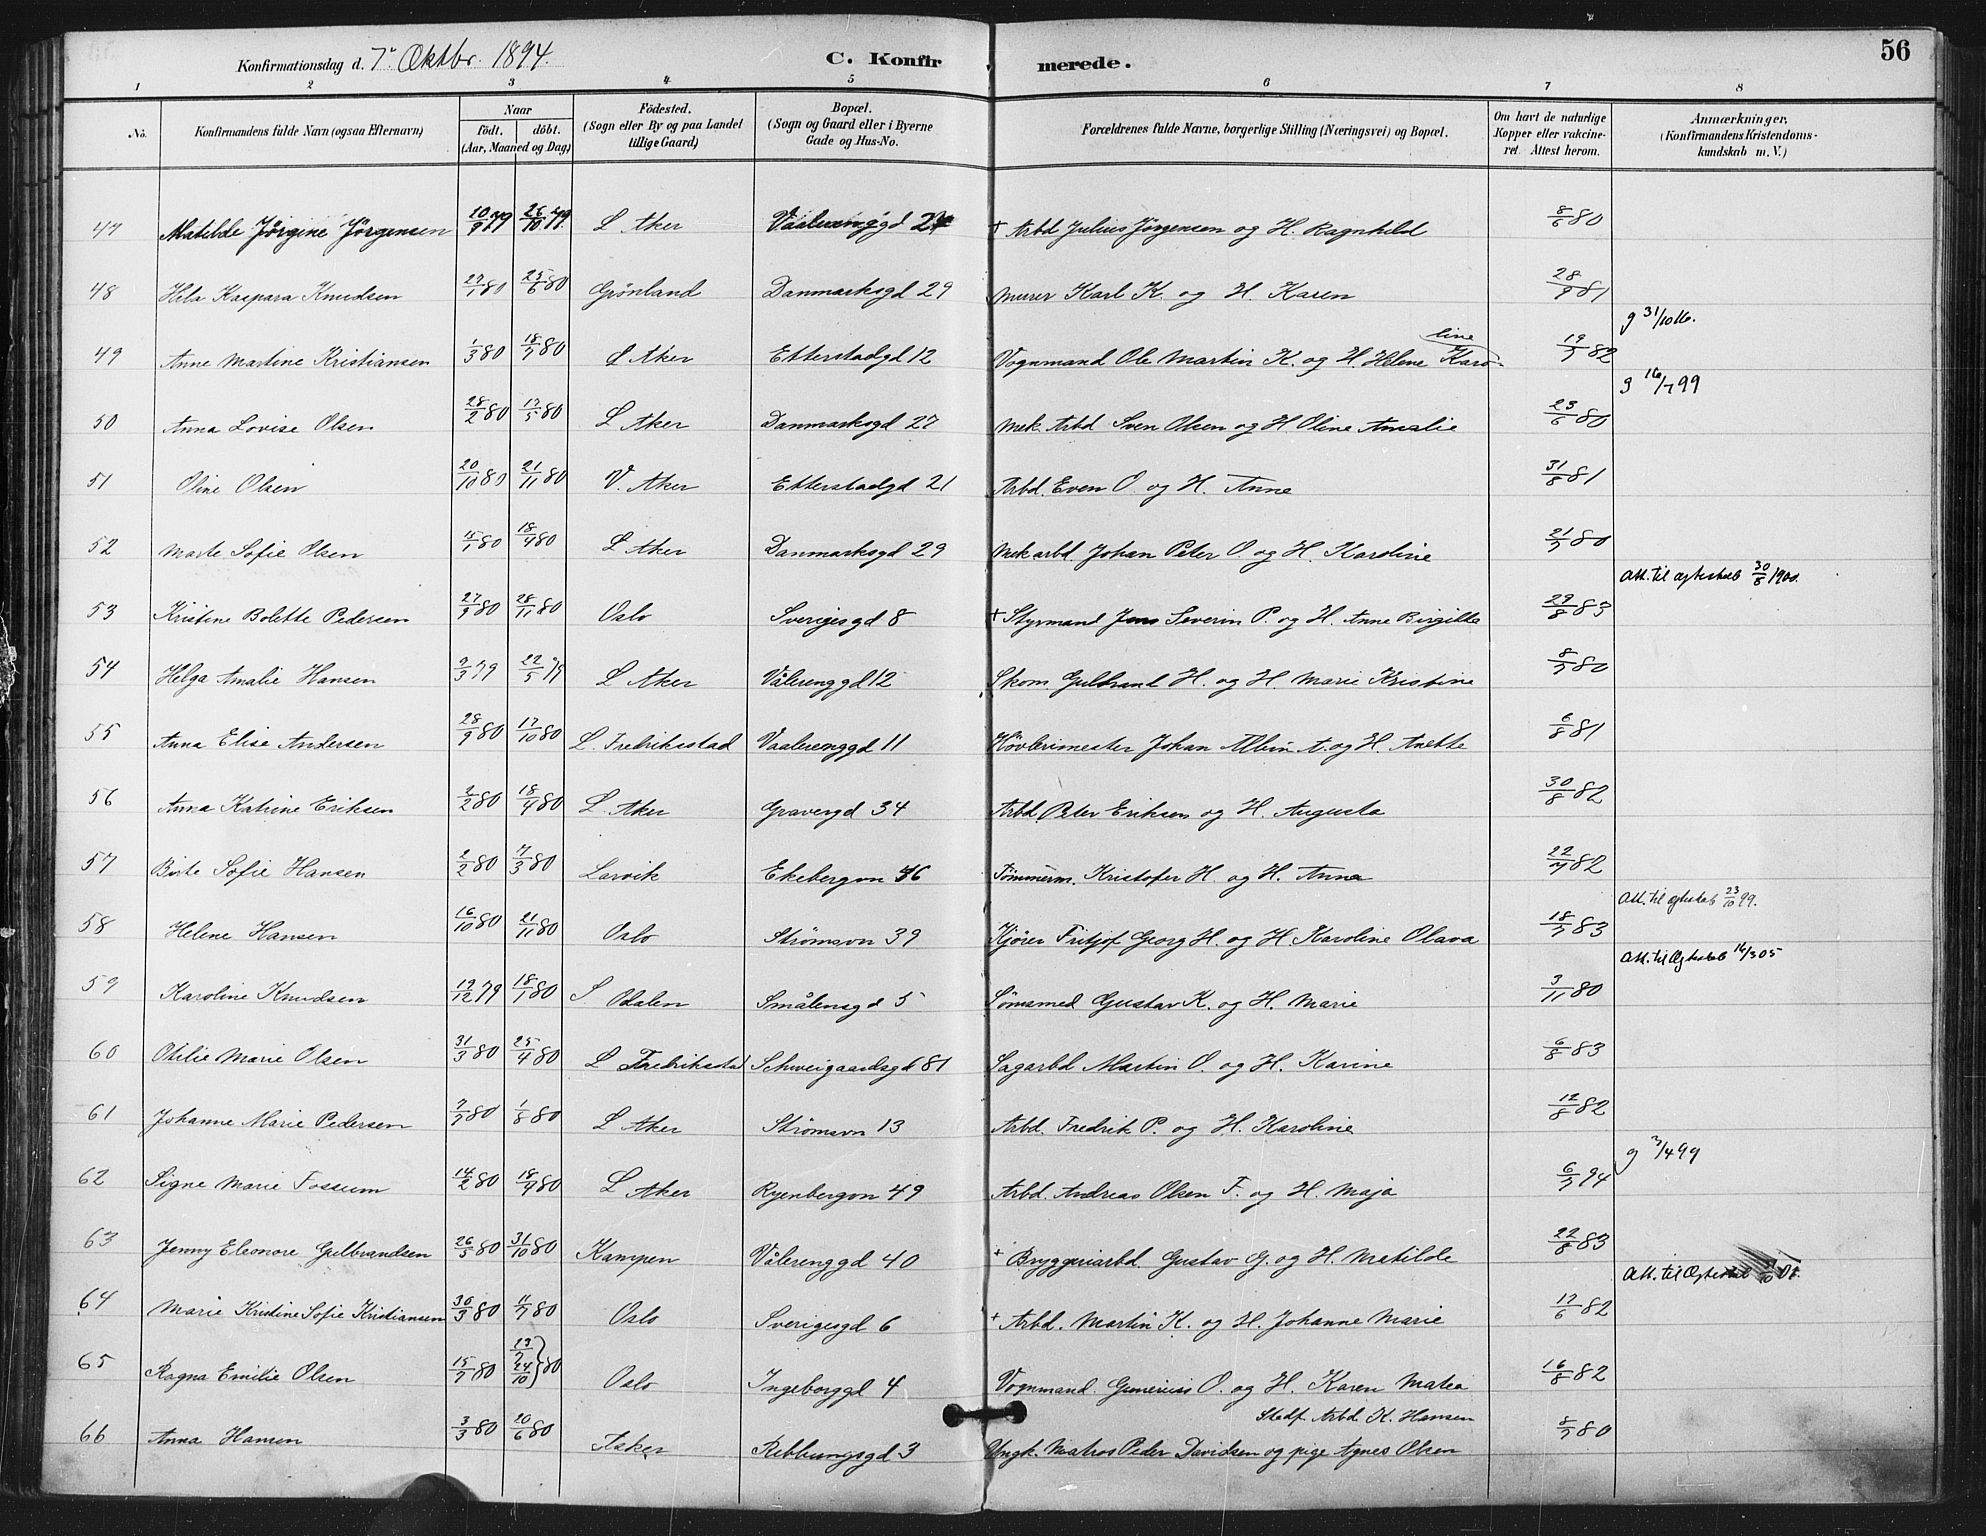 Konfirmationsdag d. 7de Oktbr. 1894. C. Konfir merede. 56
1 2 3 4 5 6 7 8
No. Konfirmandens fulde Navn (ogsaa Efternavn) Naar födt. döbt. (Aar, Maaned og Dag) Födested. (Sogn eller By og paa Landet tillige Gaard) Bopæl. (Sogn og Gaard eller i Byerne Gade og Hus-No. Forældrenes fulde Navne, borgerlige Stilling (Næringsvei) og Bopæl. Om havt de naturlige Kopper eller vakcineret. Attest herom. Anmærkninger, (Konfirmandens Kristendomskundskab m. V.)
47 Matilde Jörgine Jörgensen 20/9 79 26/10 79. L Aker Vaalerenggd 24 + Arbd Julius Jörgensen og H. Ragnhild 8/6 80
48 Kaspara Knudsen 27/1 80 25/6 80 Grönland Danmarksgd 29 Murer Karl K. og H. Karen 28/9 81
g 31/10 16.
49 Anne Martine Kristiansen 1/3 80 18/7 80 L Aker Etterstadgd 12 Vognmand Ole Martin K. og H. Helene Karoline 19/7 82
g 16/7 99
50 Anna Lovise Olsen 28/2 80 17/5 80 L Aker Danmarksgd 27 Mek. Arbd Sven Olsen og H Oline Amalie 23/6 80
51 Oline Olsen 20/10 80 21/11 80 V. Aker Etterstadgd 21 Arbd. Even O. og H. Anne 31/8 81
52 Marte Sofie Olsen 15/1 80 18/4 80 L Aker Danmarksgd 29 Mek arbd. Johan Peter O. og H. Karoline 21/7 80
Att. til Ægteskab 30/8 1900.
53 Kristine Bolette Pedersen 27/9 80 28/11 80 Oslo Sverigesgd 8 + Styrmand Jens Severin P. og H. Anne Birgitte 29/8 83
54 Helga Amalie Hansen 9/3 79 22/5 79 L Aker Vålerenggd 12 Skom. Gulbrand H. og H. Marie Kristine 8/7 80
55 Anna Elise Andersen 28/9 80 17/10 80 L. Fredrikstad Vaalerenggd 11 Hövlerimester Johan Albin A. og H. Anette 6/8 81
56 Anna Katrine Eriksen 2/2 80 18/4 80 L. Aker Gravergd 34 Arbd. Peter Eriksen og H. Augusta 30/8 82
57 Birte Sofie Hansen 2/2 80 7/3 80 Larvik Ekebergvn 46 Tömmerm. Kristofer H. og H. Anna 22/7 82
Att. til Ægteskab 23/10 99.
58 Helene Hansen 16/10 80 21/11 80 Oslo Strömsvn 39 Kjörer Fritjof Georg H. og H. Karoline Olava 18/7 83
Att. til Ægteskab 16/3 05
59 Karoline Knudsen 19/12 79 18/1 80 S Odalen Smålensgd 5 Sömsmed Gustav K. og H. Marie 3/11 80
60 Otilie Marie Olsen 31/3 80 25/4 80 L Fredrikstad Schweigaardsgd 81 Sagarbd Martin O. og H. Karine 6/8 83
61 Johanne Marie Pedersen 7/7 80 1/8 80 L Aker Strömsvn 13 Arbd. Fredrik P. og H. Karoline 12/8 82
g 3/4 99
62 Signe Marie Fossum 14/2 80 18/9 80 L Aker Ryenbergvn 49 Arbd. Andreas Olsen F. og H. Maja 6/7 94
63 Jenny Eleonore Gulbrandsen 26/5 80 31/10 80 Kampen Vålerenggd 40 + Bryggeriarbd Gustav G. og H. Matilde 22/8 83
Att. til Ægteskab
64 Marie Kristine Sofie Kristiansen 30/3 80 11/7 80 Oslo Sverigesgd 6 + Arbd. Martin K. og H. Johanne Marie 17/6 82
65 Ragna Emilie Olsen 15/7 80 23/7 24/10 } 80 Oslo Ingeborggd 4 Vognmand Gunerius O. og H. Karen Matea 16/8 82
Stedf Arbd. K. Hansen
66 Anna Hansen 3/3 80 20/6 80 Asker Ribbungsgd 3 Ungk. Matros Peder Davidsen og pige Agnes Olsen 8/7 80